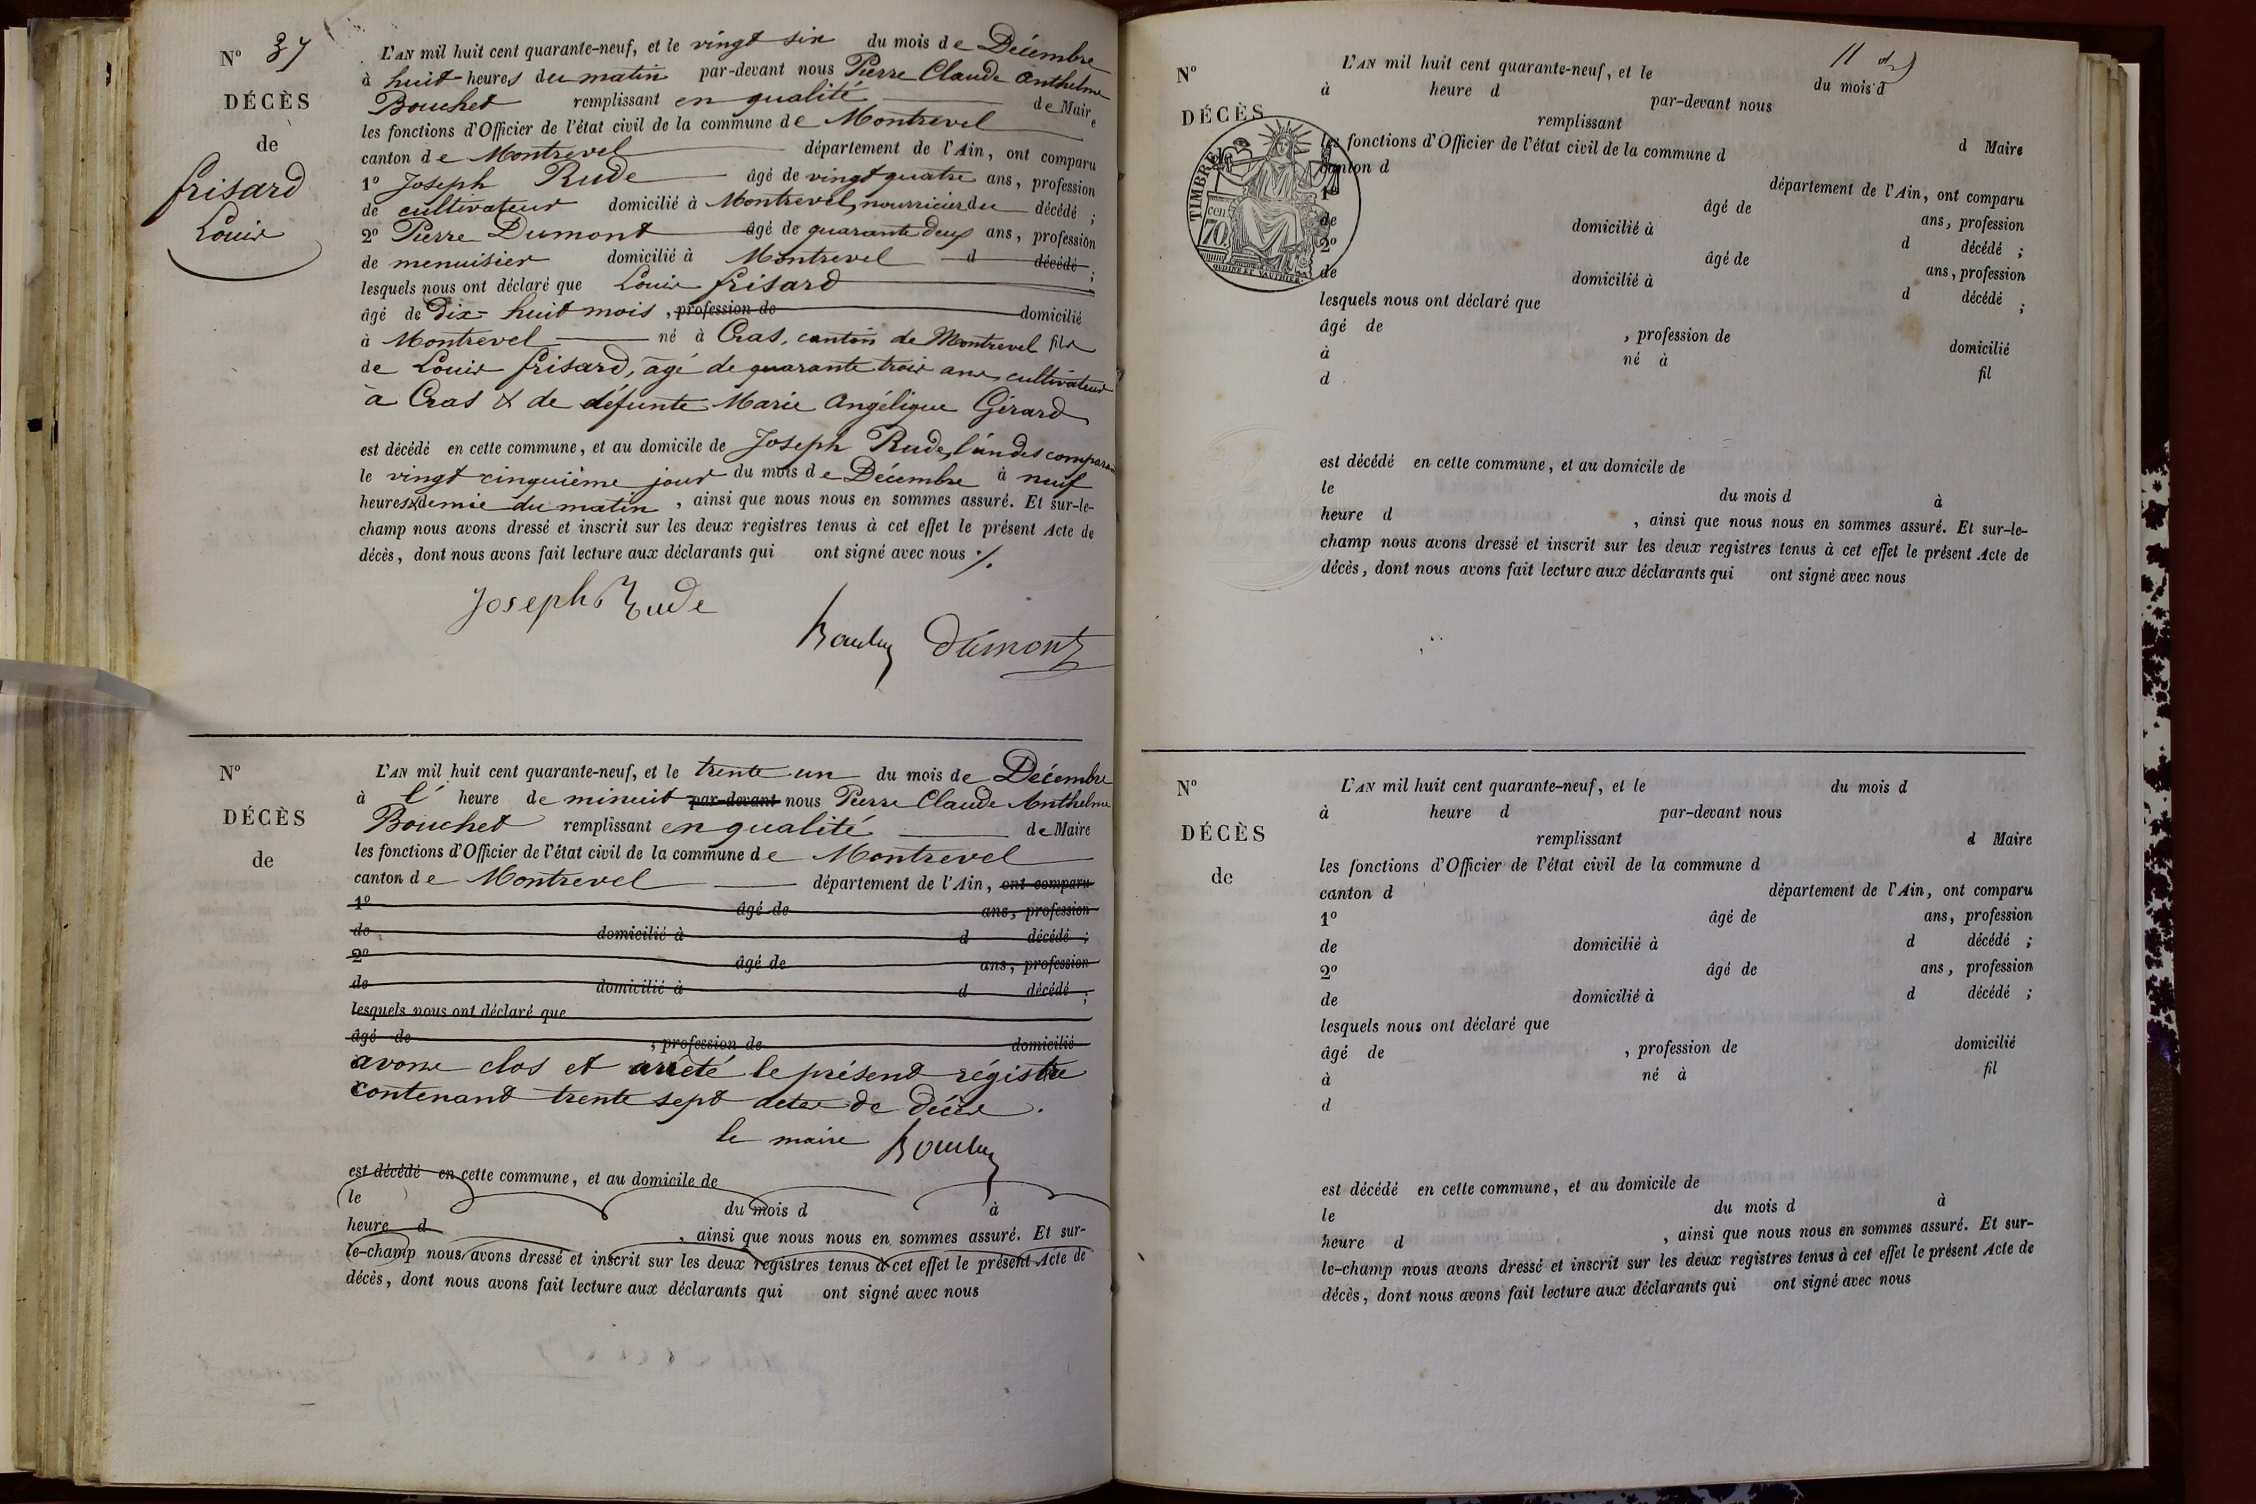 N° 37
DÉCÈS
de
frisard
Louis
L'AN mil huit cent quarante-neuf, et le vingt six du mois de Décembre
à huit heures du matin par-devant nous Pierre Claude Anthelme
Bouchet remplissant en qualité de Maire
les fonctions d'Officier de l'état civil de la commune de Montrevel
canton de Montrevel département de l'Ain, ont comparu
1° Joseph Rude âgé de vingt quatre ans, profession
de cultivateur domicilié à Montrevel, nourricier du décédé ;
2° Pierre Dumont âgé de quarante deux ans, profession
de menuisier domicilié à Montrevel d décédé ;
lesquels nous ont déclaré que Louis frisard
âgé de Dix-huit mois, profession de domicilié
à Montrevel né à Cras, canton de Montrevel fils
de Louis frisard, âgé de quarante trois ans, cultivateur
à Cras & de défunte Marie Angélique Girard
est décédé en cette commune, et au domicile de Joseph Rude, l'un des comparan
le vingt cinquième jour du mois de Décembre à neuf
heures & demie du matin, ainsi que nous nous en sommes assuré. Et sur-le-
champ nous avons dressé et inscrit sur les deux registres tenus à cet effet le présent Acte de
décès, dont nous avons fait lecture aux déclarants qui ont signé avec nous ./.
Joseph Rude
Bouchet Dumont
N°
DÉCÈS
de
L'AN mil huit cent quarante-neuf, et le trente un du mois de Décembre
à l' heure de minuit par-devant nous Pierre Claude Anthelme
Bouchet remplissant en qualité de Maire
les fonctions d'Officier de l'état civil de la commune de Montrevel
canton de Montrevel département de l'Ain, ont comparu
1° âgé de ans, profession
de domicilié à d décédé ;
2° âgé de ans, profession
de domicilié à d décédé ;
lesquels nous ont déclaré que
âgé de , profession de domicilié
avons clos et arrêté le présent régistre
contenant trente sept actes de décès.
le maire Bouchet
est décédé en cette commune, et au domicile de
le du mois d à
heure d , ainsi que nous nous en sommes assuré. Et sur-
le-champ nous avons dressé et inscrit sur les deux registres tenus à cet effet le présent Acte de
décès, dont nous avons fait lecture aux déclarants qui ont signé avec nous
11
N°
DÉCÈS
TIMBRE
70 cen
OUDINÉ ET VAUTHIER
L'AN mil huit cent quarante-neuf, et le du mois d
à heure d par-devant nous
remplissant d Maire
les fonctions d'Officier de l'état civil de la commune d
canton d département de l'Ain, ont comparu
1° âgé de ans, profession
de domicilié à d décédé ;
2° âgé de ans, profession
de domicilié à d décédé ;
lesquels nous ont déclaré que
âgé de , profession de domicilié
à né à fil
d
est décédé en cette commune, et au domicile de
le du mois d à
heure d , ainsi que nous nous en sommes assuré. Et sur-le-
champ nous avons dressé et inscrit sur les deux registres tenus à cet effet le présent Acte de
décès, dont nous avons fait lecture aux déclarants qui ont signé avec nous
N°
DÉCÈS
de
L'AN mil huit cent quarante-neuf, et le du mois d
à heure d par-devant nous
remplissant d Maire
les fonctions d'Officier de l'état civil de la commune d
canton d département de l'Ain, ont comparu
1° âgé de ans, profession
de domicilié à d décédé ;
2° âgé de ans, profession
de domicilié à d décédé ;
lesquels nous ont déclaré que
âgé de , profession de domicilié
à né à fil
d
est décédé en cette commune, et au domicile de
le du mois d à
heure d , ainsi que nous nous en sommes assuré. Et sur-
le-champ nous avons dressé et inscrit sur les deux registres tenus à cet effet le présent Acte de
décès, dont nous avons fait lecture aux déclarants qui ont signé avec nous